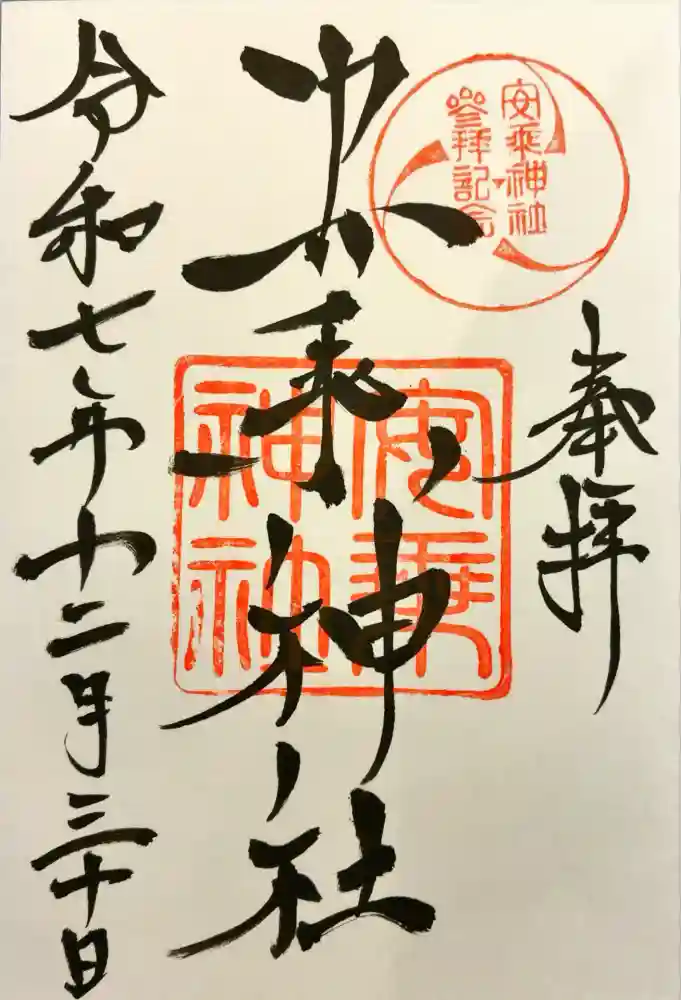 奉拝
安乗神社
参拝記念
安乗神社
安乗神社
令和七年十二月三十日